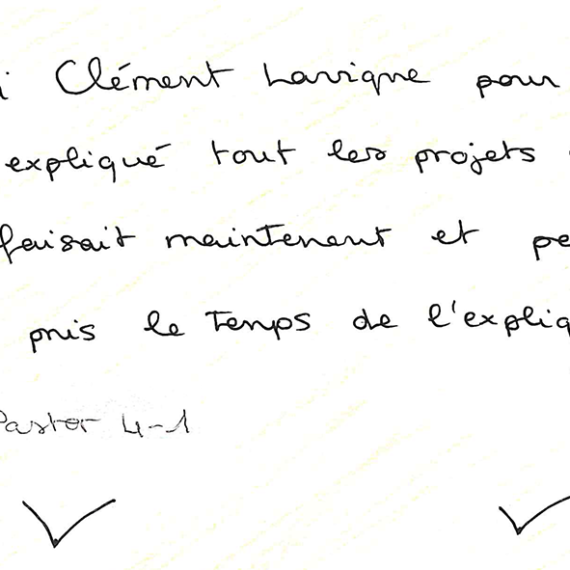 i Clément Lavigne pour
expliqué tout les projets
faisait maintenant et pe
pris le temps de l'expliq
Pastor 4-1